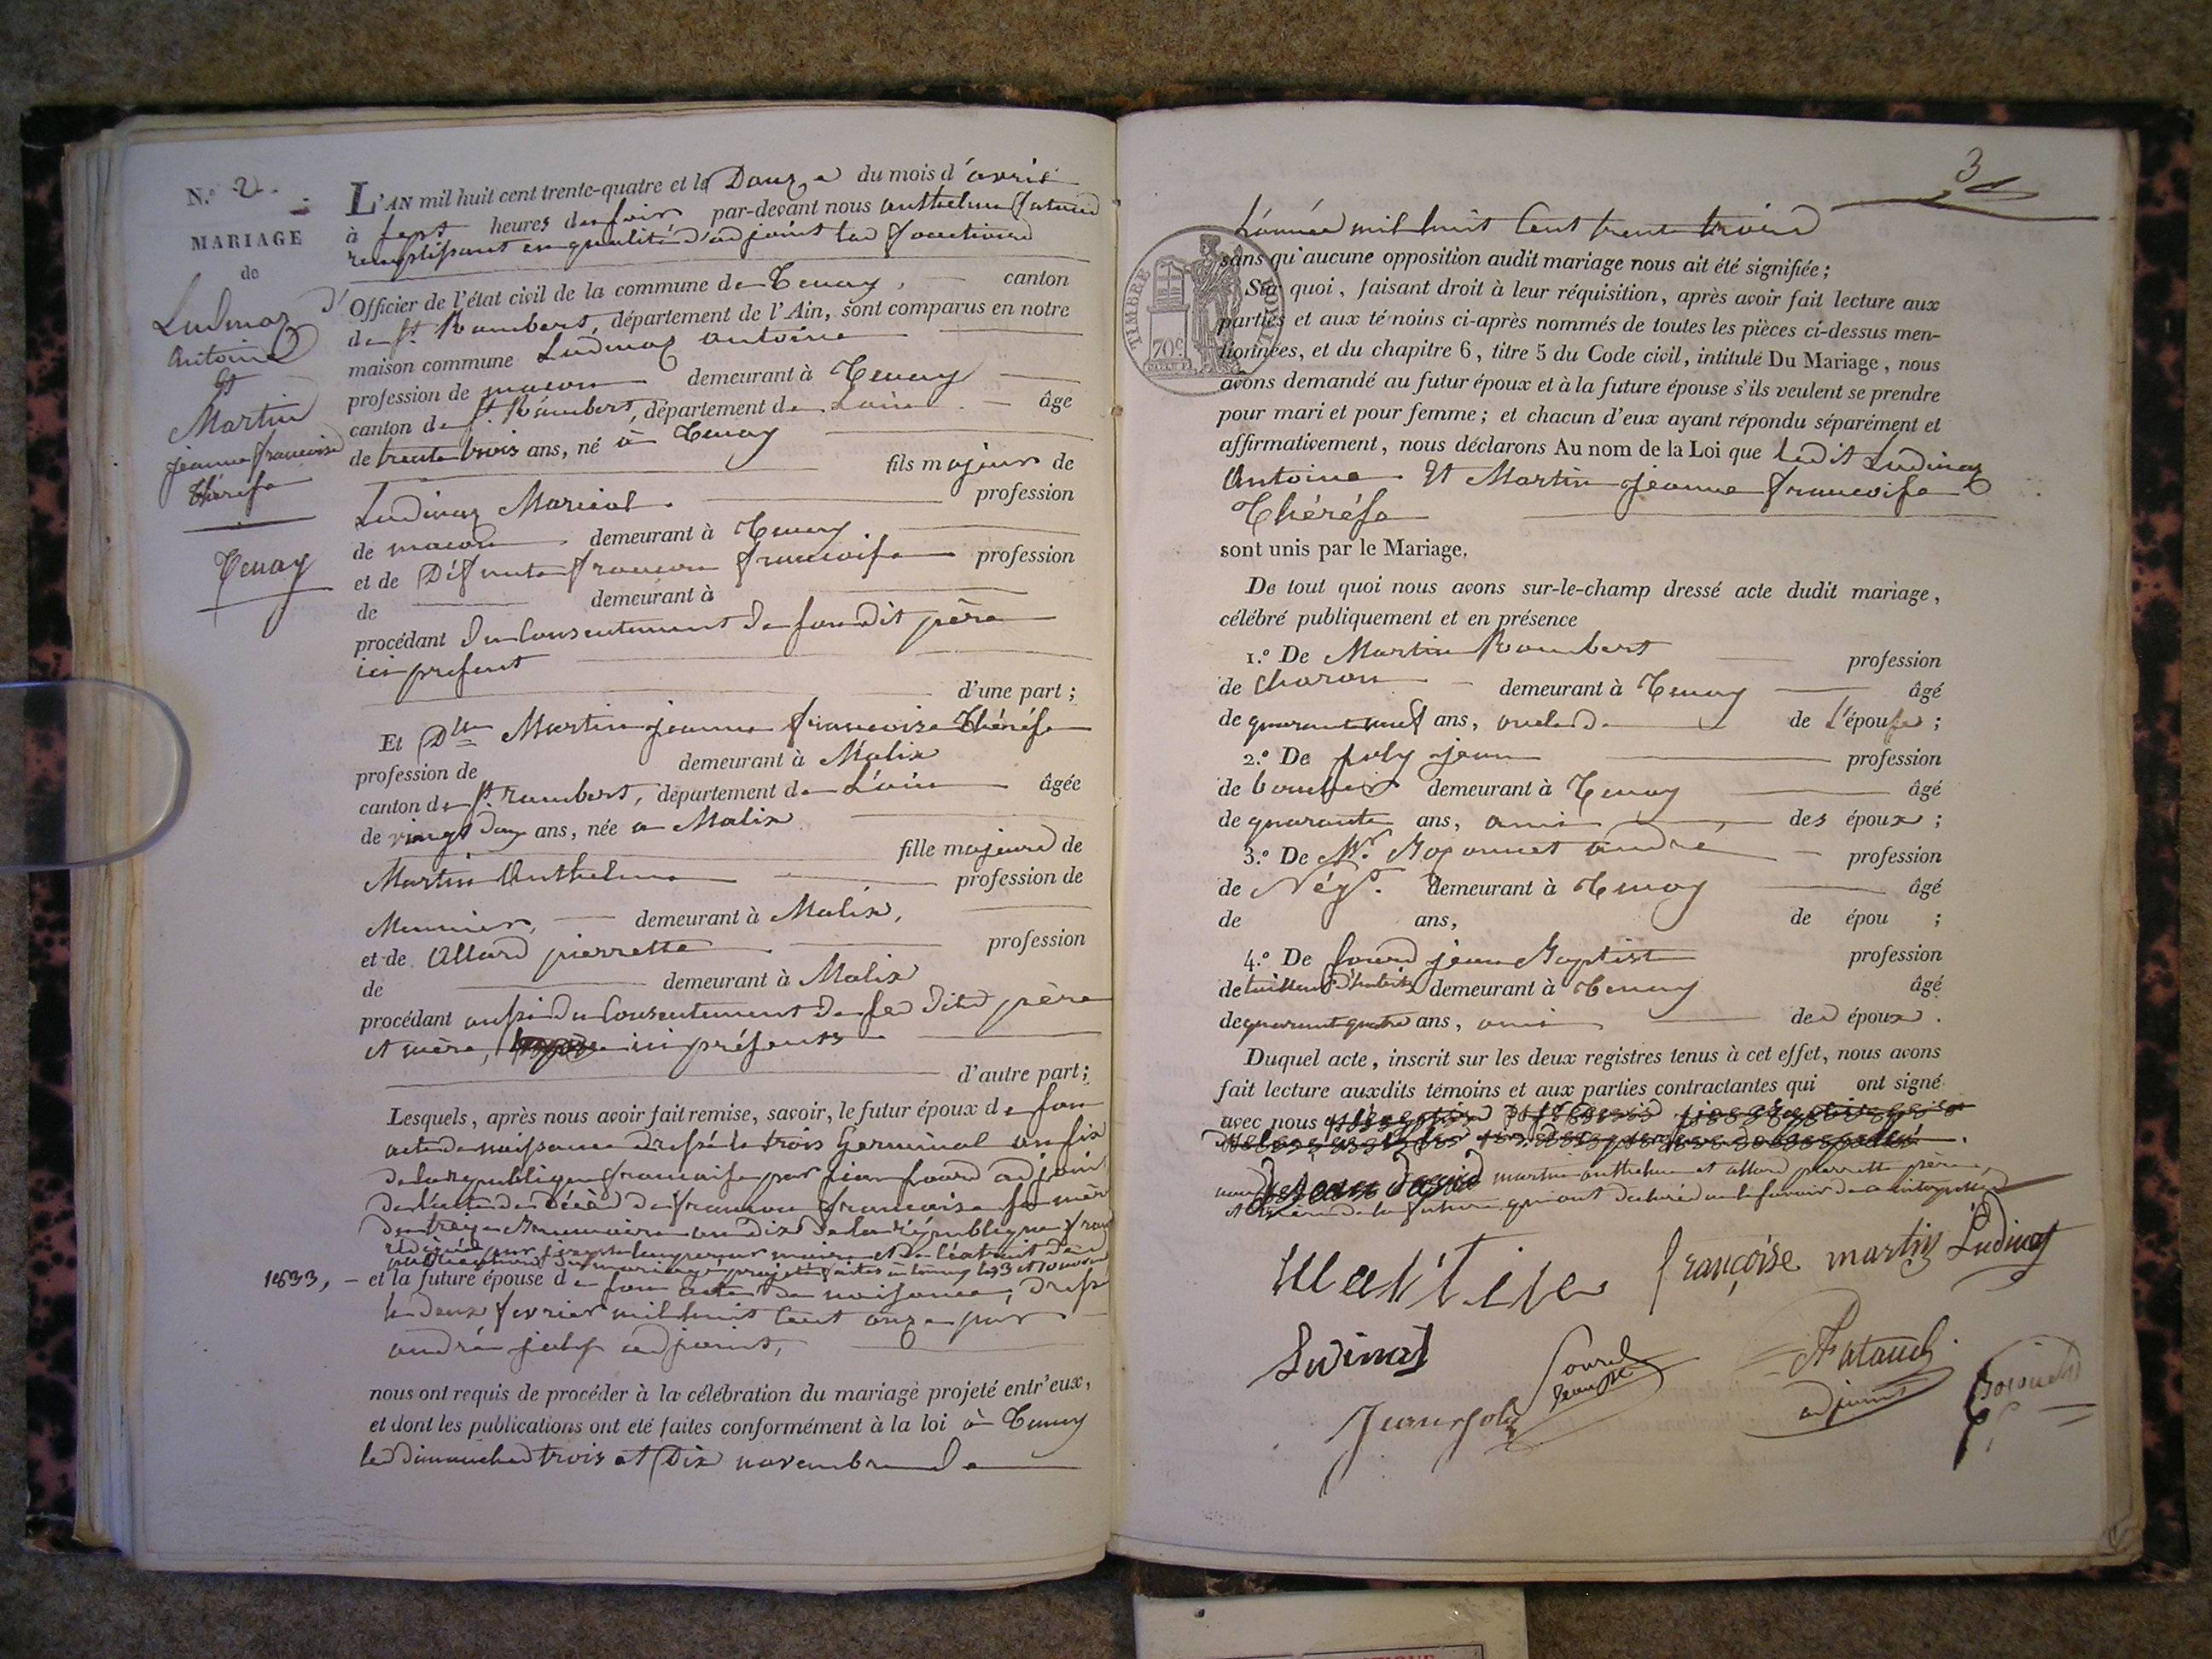 N.o 2.
MARIAGE
de
Ludinaz
Antoine
Et
Martin
jeanne francoise
thérèse
Tenay
L'AN mil huit cent trente-quatre et le Douze du mois d'avril
à sept heures du soir par-devant nous anthelme
remplissant en qualité d'adjoint les fonctions
d'Officier de l'état civil de la commune de Tenay, canton
de St. Rambert, département de l'Ain, sont comparus en notre
maison commune Ludinaz antoine
profession de macon demeurant à Tenay
canton de St. Rambert, département de Lain âgé
de trente trois ans, né à Tenay
fils majeur de
Ludinaz Marcial profession
de macon demeurant à Tenay
et de Défunte francoise profession
de demeurant à
procédant du Consentement de son dit père
ici présent
d'une part ;
Et Dlle Martin jeanne francoise thérèse
profession de demeurant à Malix
canton de St. rambert, département de L'ain âgée
de vingt ans, née a Malix
fille majeure de
Martin Anthelme profession de
Meunier, demeurant à Malix,
et de Allard pierrette profession
de demeurant à Malix
procédant aussi du Consentement de ses dits père
et mère, ici présents
d'autre part ;
Lesquels, après nous avoir fait remise, savoir, le futur époux de son
acte de naissance dressé le trois Germinal an six
de la république francaise par jean adjoint
de l'acte de décès de francoise sa mère
du treize Brumaire an dix de la république
rédigé par maire et de l'extrait de
publications du mariage projeté faites à tenay les 3 et 10 novem
1833, – et la future épouse de son acte de naissance, dressé
le deux fevrier mil huit Cent onze par
andré joly adjoint,
nous ont requis de procéder à la célébration du mariage projeté entr'eux,
et dont les publications ont été faites conformément à la loi à Tenay
les Dimanches trois et Dix novembre de
3
L'année mil huit Cent trente trois
TIMBRE ROYAL
70c
sans qu'aucune opposition audit mariage nous ait été signifiée ;
Sur quoi, faisant droit à leur réquisition, après avoir fait lecture aux
parties et aux témoins ci-après nommés de toutes les pièces ci-dessus men-
tionnées, et du chapitre 6, titre 5 du Code civil, intitulé Du Mariage, nous
avons demandé au futur époux et à la future épouse s'ils veulent se prendre
pour mari et pour femme ; et chacun d'eux ayant répondu séparément et
affirmativement, nous déclarons Au nom de la Loi que ledit Ludinaz
Antoine Et Martin jeanne francoise
Thérèse
sont unis par le Mariage.
De tout quoi nous avons sur-le-champ dressé acte dudit mariage,
célébré publiquement et en présence
1.o De Martin Rambert profession
de Charon demeurant à Tenay âgé
de quarante neuf ans, oncle de de L'épouse ;
2.o De joly jean profession
de demeurant à Tenay âgé
de quarante ans, ami des époux ;
3.o De Mr. Bozonnet andré profession
de Négt. demeurant à Tenay âgé
de ans, de épou ;
4.o De jean Baptiste profession
de tailleur d'habits demeurant à Tenay âgé
de quarant quatre ans, ami des époux.
Duquel acte, inscrit sur les deux registres tenus à cet effet, nous avons
fait lecture auxdits témoins et aux parties contractantes qui ont signé
avec nous
martin anthelme et allard pierrette père
et mère de la future qui ont déclaré ne le savoir de ce
Martin
françoise martin Ludinaz
Ludinaz
Jean Joly
adjoint